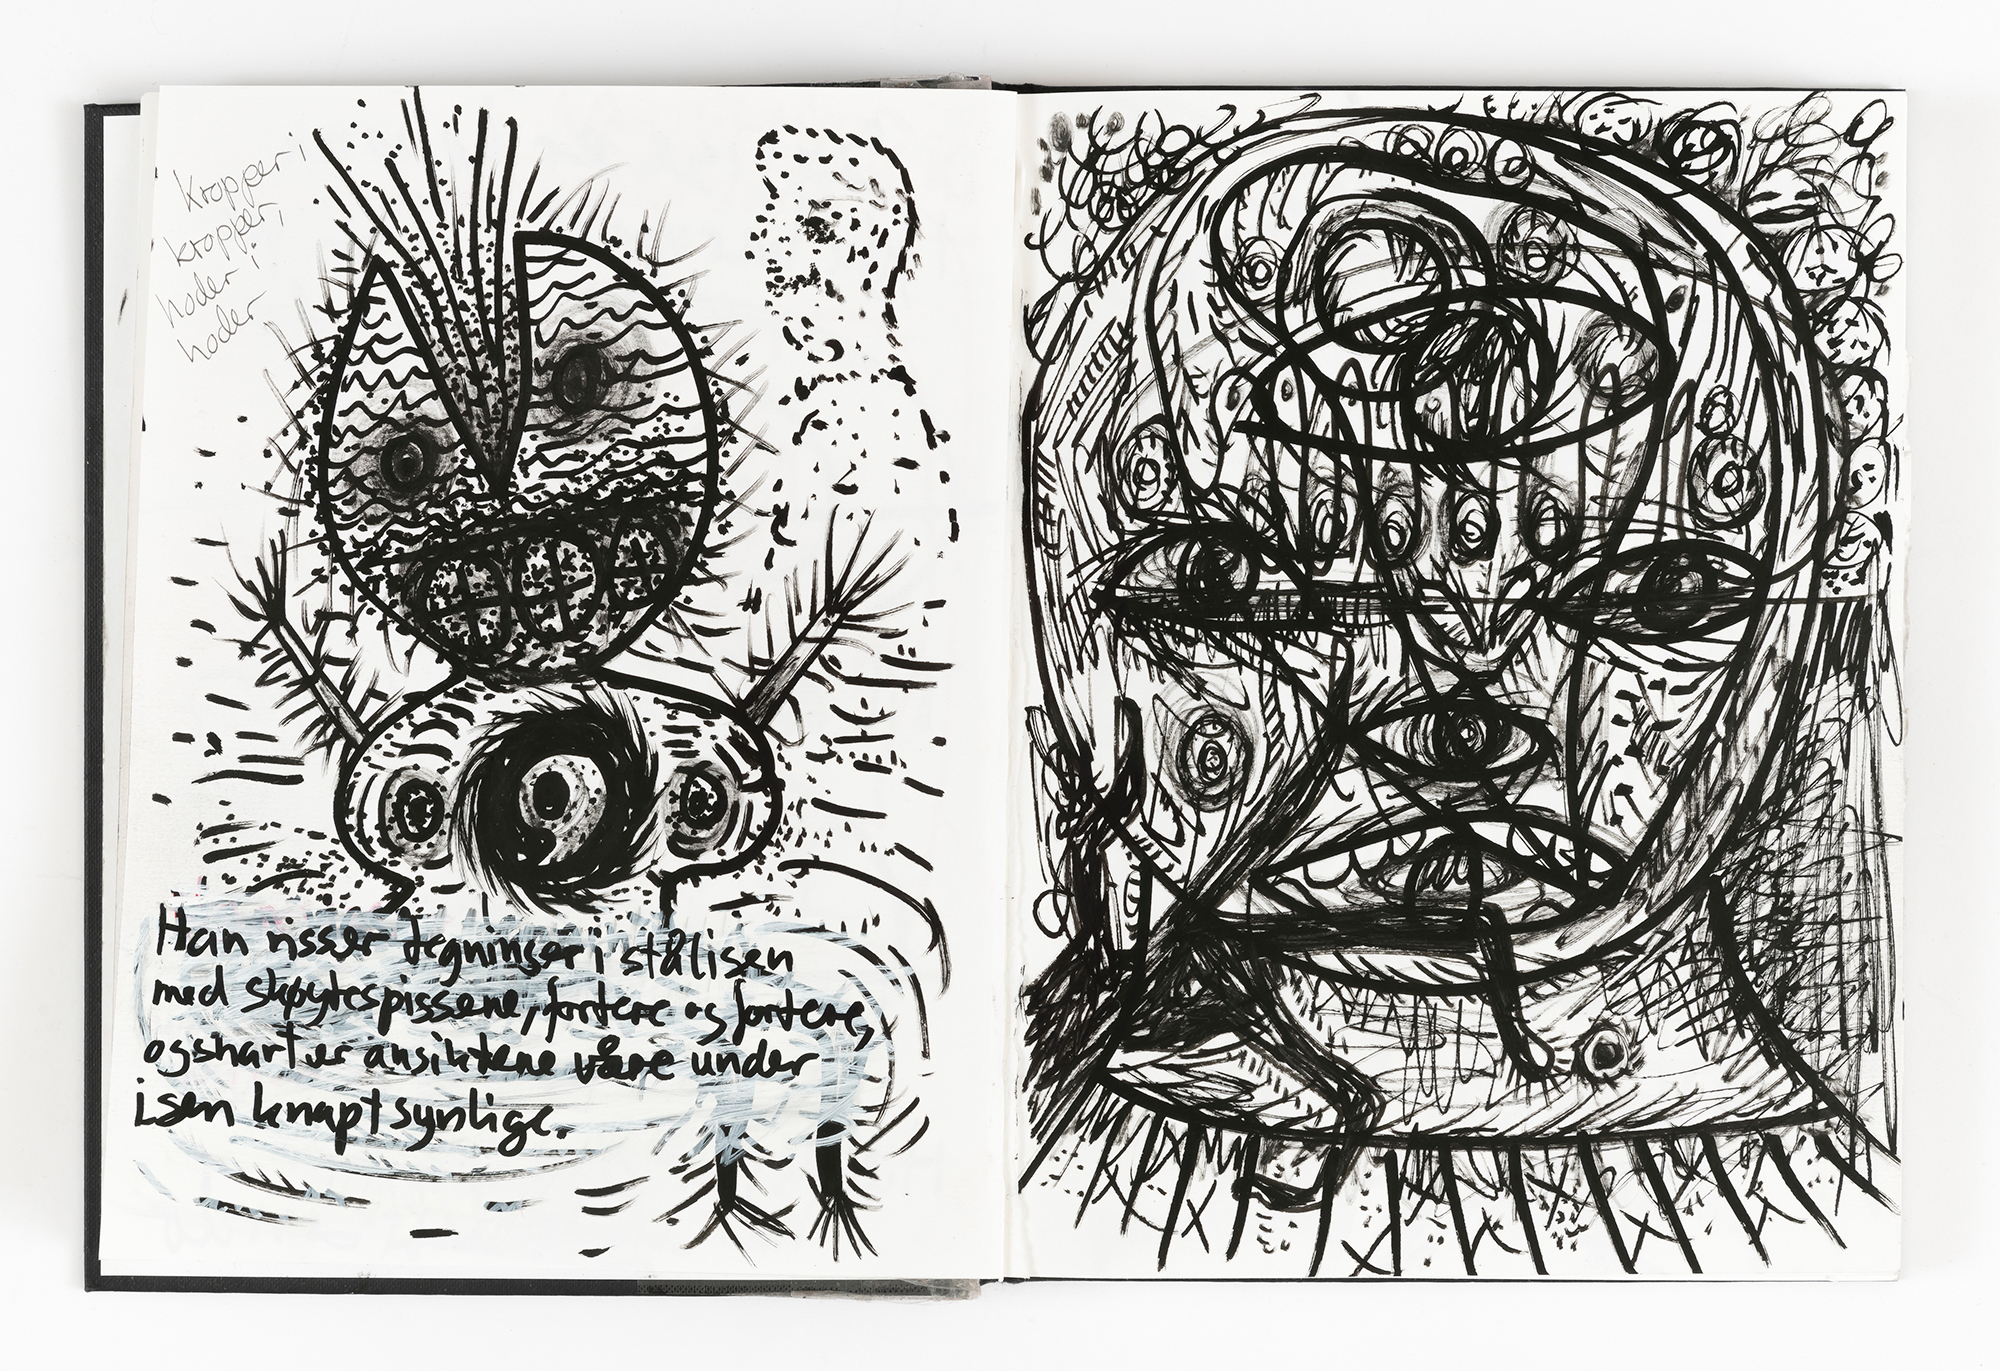 Kropper i
kropper,
hoder i
hoder
Han risser tegninger i stålisen
med skøytespissene, fortere og fortere,
og snart er ansiktene våre under
isen knapt synlige.